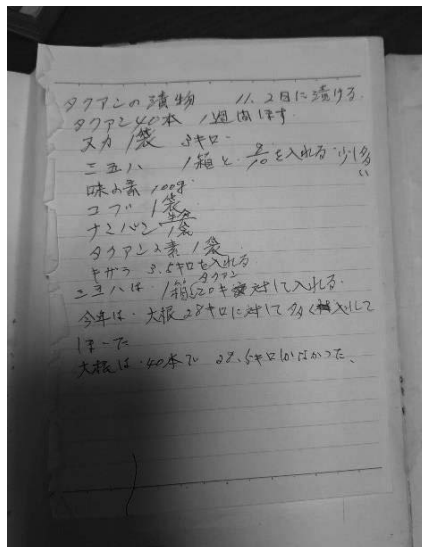 タクアンの漬物 11.2日に漬ける.
タクアン40本 1週間ほす
ヌカ 1袋 3キロ
三五八 1箱と 8/10を入れる 少し多い
味の素 100g
コブ 1袋
ナンバン 1袋
タクアンの素 1袋
キザラ 3.5キロを入れる
三五八は 1箱 タクアン20キロに対して入れる
今年は 大根28キロに対して多く入れて
しまった
大根は 40本で 28.5キロしかなかった、